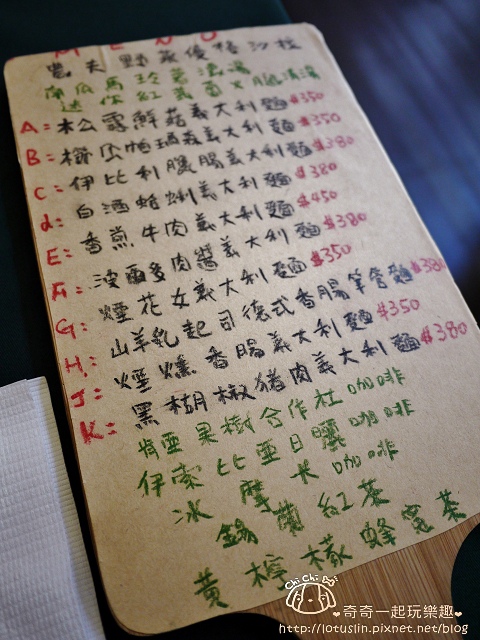 MENU
農夫野菜優格沙拉
南瓜馬玲薯濃湯
迷你紅
A: 松公露鮮菇義大利麵$350
B: 義大利麵$350
C: 伊比利臘腸義大利麵$380
d: 白酒蛤蜊義大利麵$380
E: 香煎牛肉義大利麵$450
F: 波爾多肉醬義大利麵$380
G: 煙花女義大利麵$350
H: 山羊乳起司德式香腸筆管麵$380
J: 煙燻香腸義大利麵$350
K: 黑胡椒豬肉義大利麵$380
肯亞果樹合作社咖啡
伊索比亞日曬咖啡
冰摩卡咖啡
錫蘭紅茶
黃檸檬蜂蜜茶
Chi Chi Boi
奇奇一起玩樂趣
http://lotuslin.pixnet.net/blog